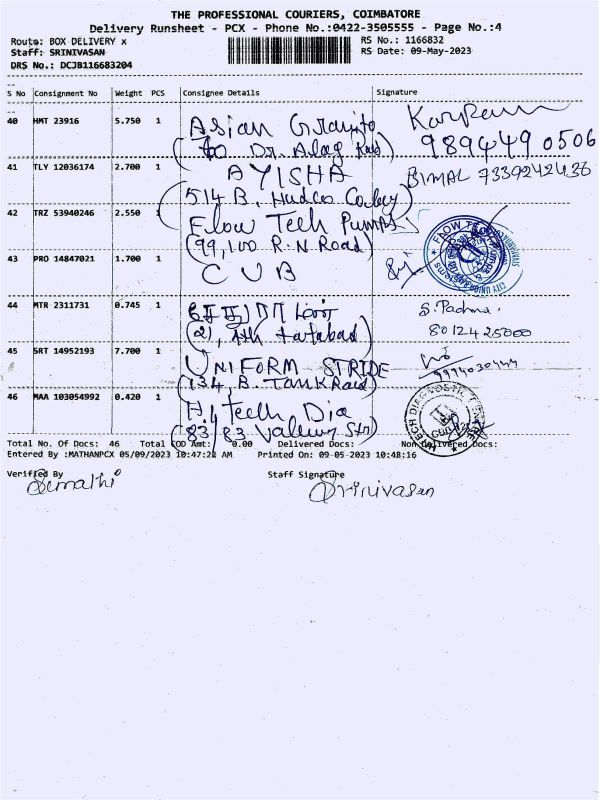 THE PROFESSIONAL COURIERS, COIMBATORE
Delivery Runsheet - PCX - Phone No.:0422-3505555 - Page No.:4
Route: BOX DELIVERY x RS No.: 1166832
Staff: SRINIVASAN RS Date: 09-May-2023
DRS No.: DCJB116683204
S No Consignment No Weight PCS Consignee Details Signature
40 HMT 23916 5.750 1 Asian Granito
(To Dr. Alag Rd) 9894490506
41 TLY 12036174 2.700 1 AYISHA BIMAL 7339242436
(514 B, Hudco Coloy)
42 TRZ 53940246 2.550 1 Flow Tech Pumps
(99,100 R.N Road)
43 PRO 14847021 1.700 1 CUB
44 MTR 2311731 0.745 1 S. Padma.
(2), 4th tatabad) 8012425000
45 SRT 14952193 7.700 1 UNIFORM STRIDE
(134, B. Tank Road) 9994030444
46 MAA 103054992 0.420 1 Hi tech Dia
(83/83 Valluvar Str)
Total No. Of Docs: 46 Total COD Amt: 0.00 Delivered Docs: Non Delivered Docs:
Entered By :MATHANPCX 05/09/2023 10:47:22 AM Printed On: 09-05-2023 10:48:16
Verified By Staff Signature
Sumathi Srinivasan